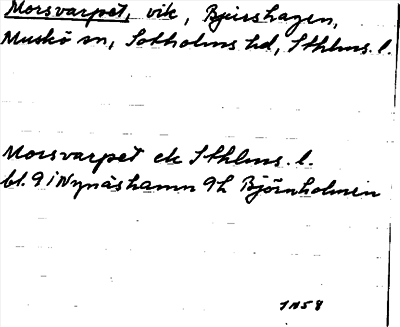 Morsvarpet, vik, Björshagen,
Muskö sn, Sotholms hd, Sthlms. l.
Morsvarpet ek Sthlms. l.
bl. 9 i Nynäshamn 9h Björnholmen
1958